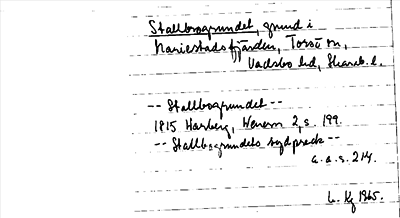 Stallbogrundet, grund i
Mariestadsfjärden, Torsö sn,
Vadsbo hd, Skarab. l.
-- Stallbogrundet --
1915 Harberg, Wenern 2, s. 199.
-- Stallbogrundets sydprack --
a. a. s. 214.
1965.